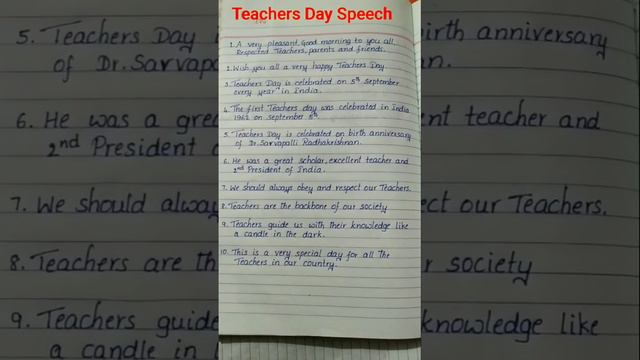 Teachers Day Speech
1. A very pleasant Good morning to you all.
Respected Teachers, parents and friends.
2. Wish you all a very happy Teachers Day
3. Teachers Day is celebrated on 5th September
every year in India.
4. The first Teachers day was celebrated in India
1962 on september 5th.
5. Teachers Day is celebrated on birth anniversary
of Dr. Sarvapalli Radhakrishnan.
6. He was a great scholar, excellent teacher and
2nd President of India.
7. We should always obey and respect our Teachers.
8. Teachers are the backbone of our society
9. Teachers guide us with their knowledge like
a candle in the dark.
10. This is a very special day for all the
Teachers in our country.
5. Teachers Day
of Dr. Sarvapa
6. He was a grea
2nd President
7. We should alway
8. Teachers are th
9. Teachers guide
a candle in
birth anniversary
an.
ent teacher and
ect our Teachers.
r society
knowledge like